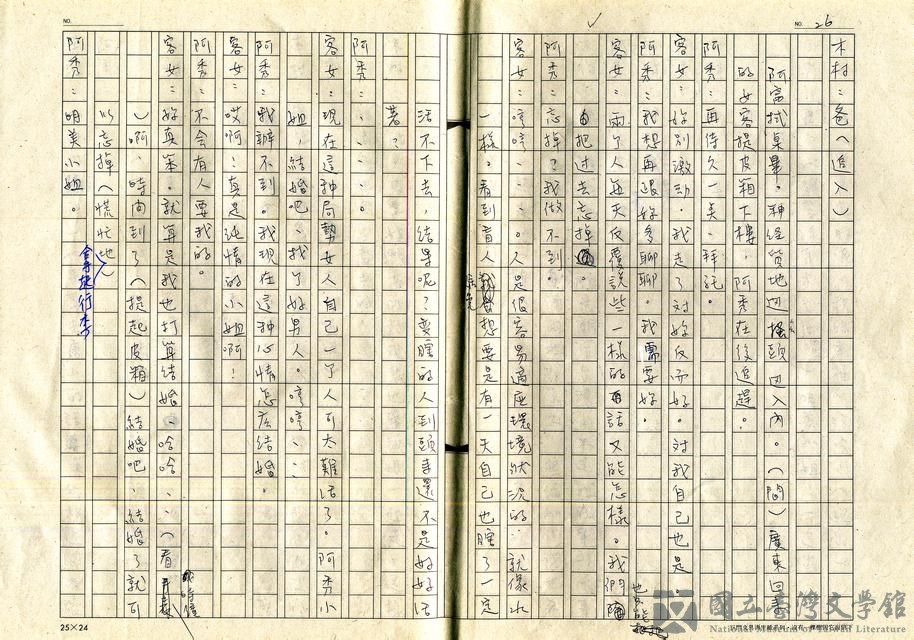 NO. 26
木村：爸（追入）
阿富拭桌畢。神經質地迎搔頭迎入內。（問）廣東回來
的女客提皮箱下樓，阿秀在後追趕。
阿秀：再待久一矣，拜託。
客女：妳別激动。我走了对妳反而好。对我自己也是。
阿秀：我想再跟妳多聊聊。我需要妳。
客女：兩个人每天反覆說些一樣的話又能怎樣。我們也只能
把过去忘掉。
阿秀：忘掉？我做不到。
客女：哼哼、、。人是很容易適应環境狀况的、、就像水
一樣。看到盲人 想要是有一天自己也瞎了一定
活不下去，结果呢？变瞎的人到頭來還不是好好活
著？
阿秀：、、、、。
客女：現在這种局勢女人自己一个人可太難活了。阿秀小
姐，结婚吧、找个好男人。哼哼、、
阿秀：我辦不到。我現在這种心情怎広结婚。
客女：哎啊：真是純情的小姐啊！
阿秀：不会有人要我的。
客女：妳真笨。就算是我也打算结婚、哈哈、、（看 時鐘
）啊、時间到了（提起皮箱）结婚吧、结婚了就可
以忘掉（慌忙地拿抉行李）
阿秀：明美小姐。
NO.
25×24
國立臺灣文學館
National Museum of Taiwan Literature